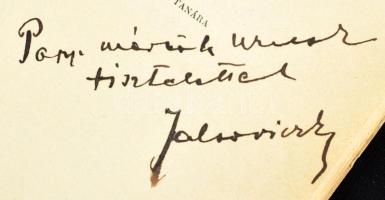 TANÁRA
Papp mérnök urnak
tisztelettel
Jalsoviczky